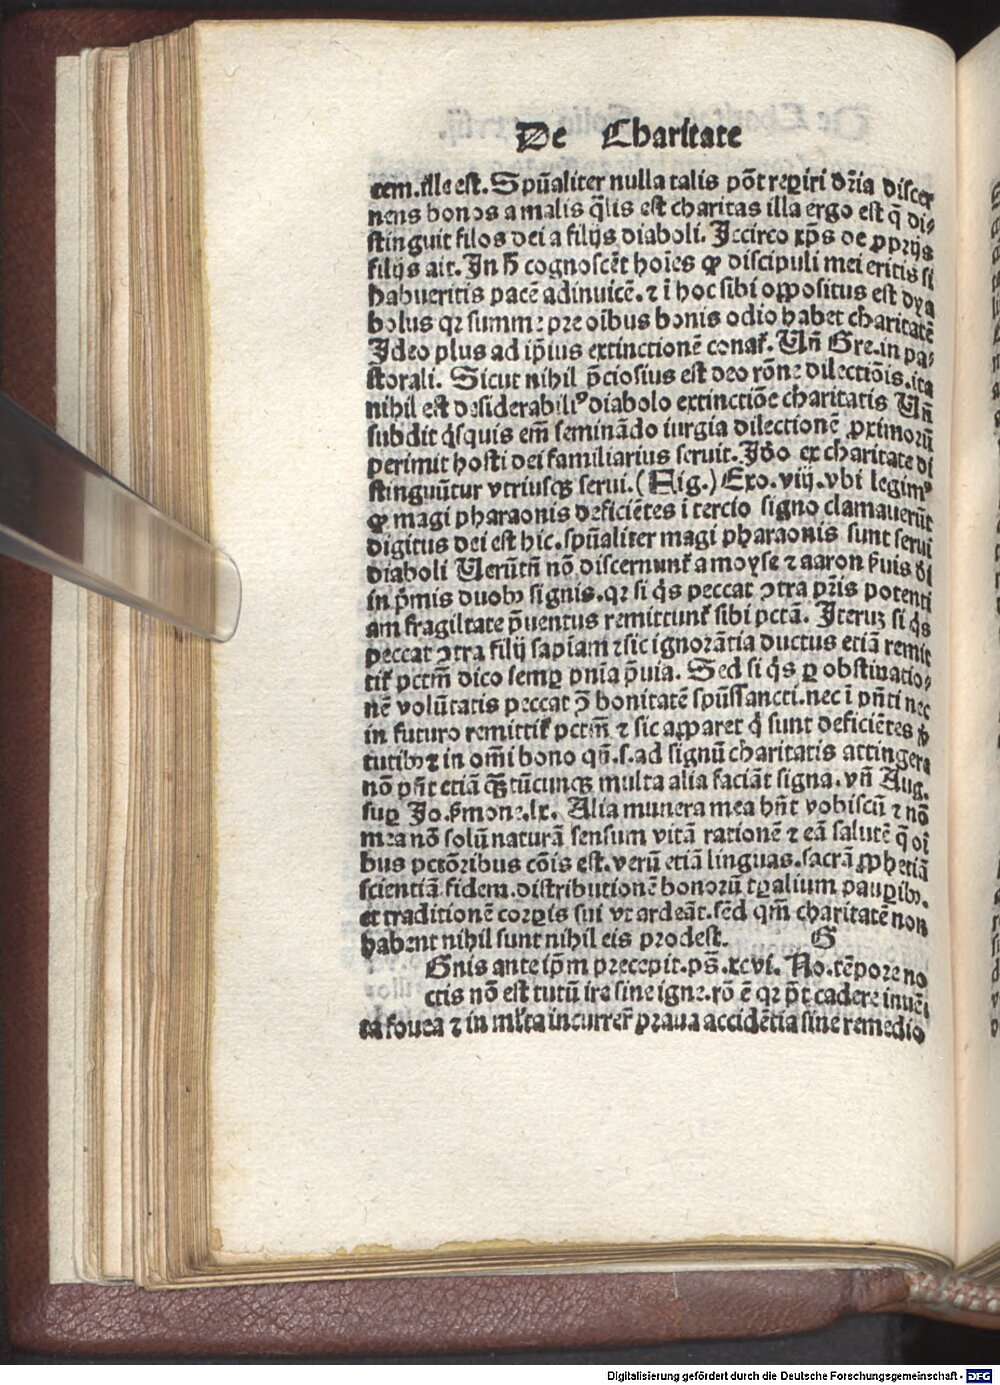 De Charitate
tem. ille est. Spũaliter nulla talis põt reꝑiri dr̃ia discer
nens bonos a malis q̃lis est charitas illa ergo est q̃ di⸗
stinguit filos dei a filijs diaboli. Jccirco xp̃s de ꝓprijs
filijs ait. In h̄ cognoscẽt hoĩes ꝙ discipuli mei eritis si
habueritis pacẽ adinuicẽ. ⁊ ĩ hoc sibi oppositus est dya
bolus qꝛ summe pre oĩbus bonis odio habet charitatẽ
Jdeo plus ad ip̃ius extinctionẽ conat̃. Vñ Gre. in pa⸗
storali. Sicut nihil p̃ciosius est deo rõne dilectiõis. ita
nihil est desiderabiliꝰ diabolo extinctiõe charitatis Vñ
subdit q̇squis em̃ seminãdo iurgia dilectionẽ ꝓximorũ
perimit hosti dei familiarius seruit. Jdo ex charitate di
stinguũtur vtriusqꝫ serui. (Fig.) Exo. viij. vbi legimꝰ
ꝙ magi pharaonis deficiẽtes ĩ tercio signo clamauerũt
digitus dei est hic. spũaliter magi pharaonis sunt serui
diaboli Verũtñ nõ discernunt̃ a moyse ⁊ aaron ẜuis di
in p̃mis duobꝫ signis. qꝛ si q̇s peccat ꝯtra pr̃is potenti
am fragiltate p̃uentus remittunt̃ sibi pctã. Jteruꝫ si q̇s
peccat ꝯtra filij sapiam ⁊sic ignorãtia ductus etiã remit
tit̃ pctm̃ dico semꝑ pnĩa p̃uia. Sed si q̇s ꝑ obstinatio⸗
nẽ volũtatis peccat ꝯ̃ bonitatẽ spũssancti. nec ĩ pñti nec
in futuro remittit̃ pctm̃ ⁊ sic apparet q̇ sunt deficiẽtes ꝟ
tutibꝫ ⁊ in om̃i bono qñ .s. ad signũ charitatis attingere
nõ pñt etiã q̃ꝫtũcunqꝫ multa alia faciãt signa. vñ Aug.
suꝑ Jo. ẜmone. lx. Alia munera mea hñt vobiscũ ⁊ nõ
mea nõ solũ naturã sensum vitã rationẽ ⁊ eã salutẽ q̃ oĩ
bus pctõribus cõis est. verũ etiã linguas. sacrã ꝓphetiã
scientiã. fidem. distributionẽ bonorũ tꝑalium pauꝑibꝫ.
et traditionẽ corꝑis sui vt ardeãt. sed qm̃ charitatẽ non
habent nihil sunt nihil eis prodest. G
Gnis ante ip̃m precepit. pš. xcvi. No. tẽpore no
ctis nõ est tutũ ire sine igne. rõ ẽ qꝛ põt cadere in uẽ⸗
ta fouea ⁊ in ml̃ta incurrer̃ praua accidẽtia sine remedio
Digitalisierung gefördert durch die Deutsche Forschungsgemeinschaft - DFG